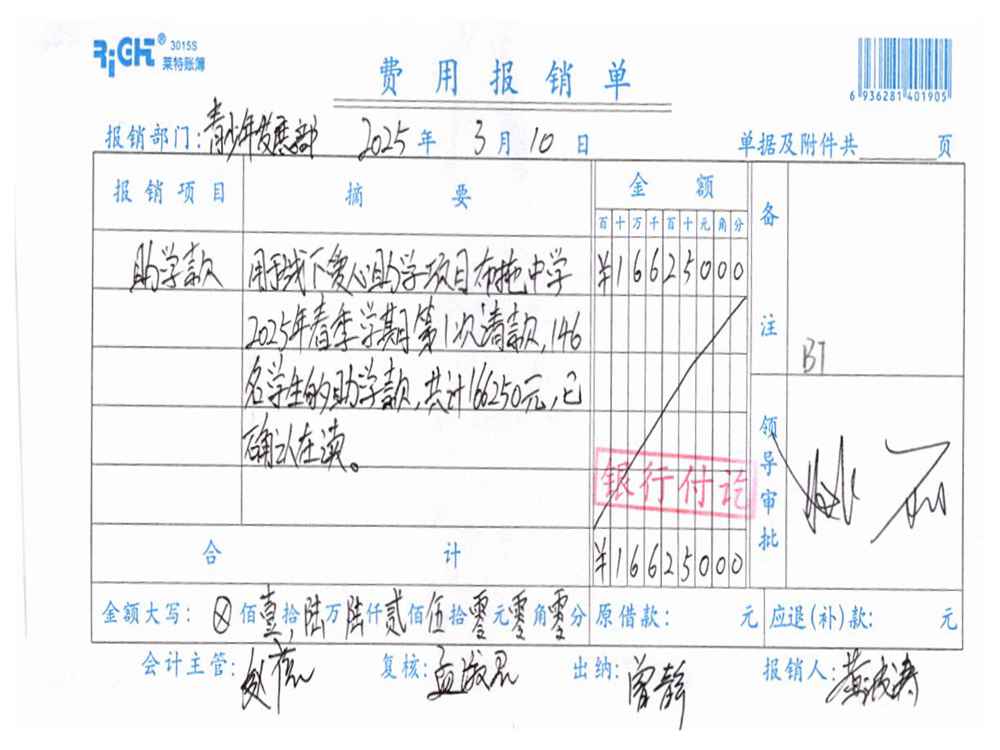 RiGHT® 3015S
莱特账簿
费用报销单
6 936281 401905
报销部门:青少年发展部 2025年3月10日 单据及附件共 页
报销项目 摘要 金额 备注
百十万千百十元角分
助学款 用于线下爱心助学项目布拖中学 ¥16625000
2025年春季学期第1次请款,146
名学生的助学款,共计166250元,已
确认在读。
BJ
银行付讫
领导审批
合计 ¥16625000
金额大写:ⓧ佰壹拾陆万陆仟贰佰伍拾零元零角零分 原借款: 元 应退(补)款: 元
会计主管: 复核: 出纳:曾静 报销人: